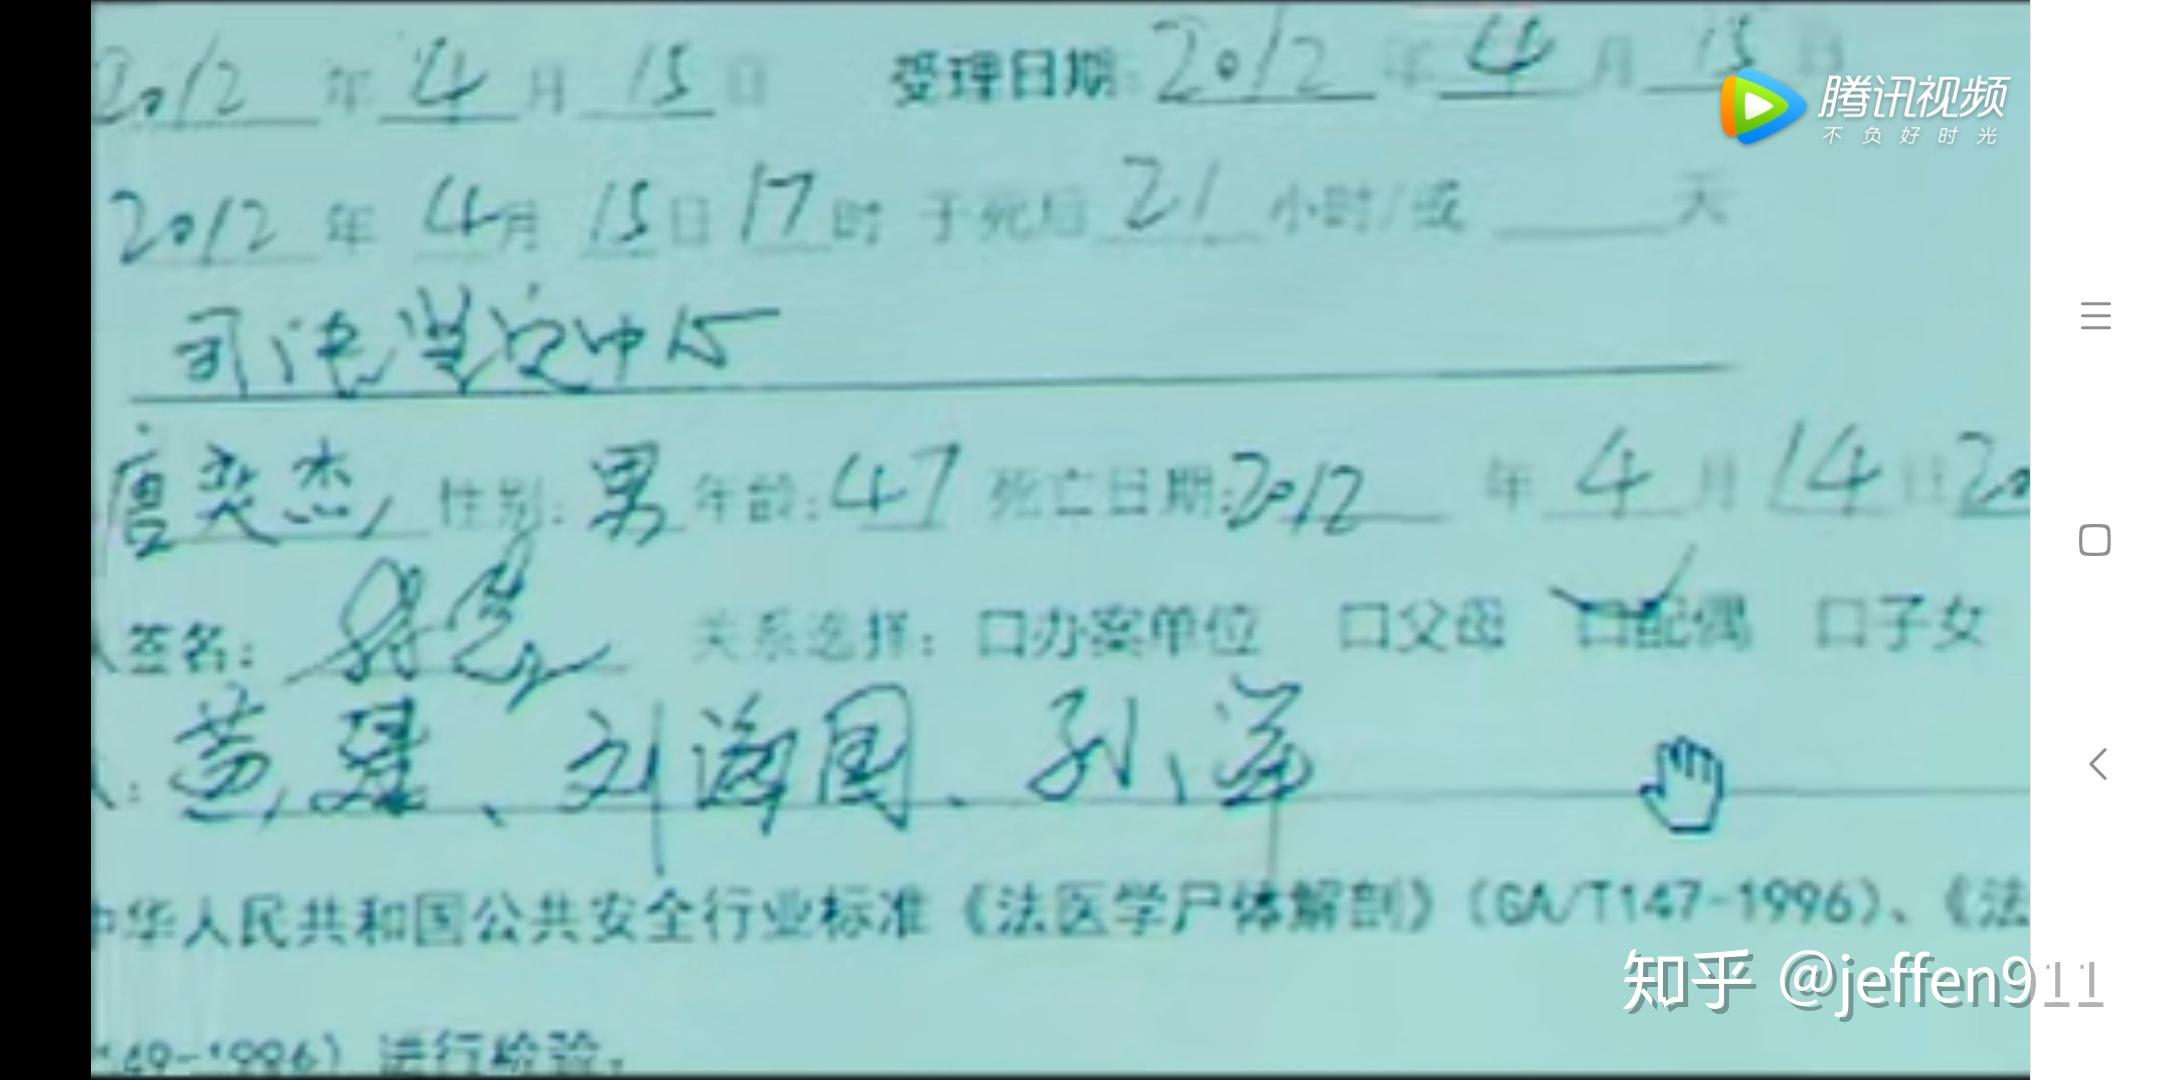 2012 年 4 月 15 日 受理日期: 2012 年 4 月 15 日
腾讯视频
不负好时光
2012 年 4 月 15 日 17 时 于死后 21 小时/或 天
司法鉴定中心
唐奕杰 性别: 男 年龄: 47 死亡日期: 2012 年 4 月 14 日 20
签名: 关系选择: 口办案单位 口父母 口配偶 口子女
黄建、刘海国、孙洋
中华人民共和国公共安全行业标准《法医学尸体解剖》(GA/T147-1996)、《法
149-1996) 进行检验。
知乎 @jeffen911